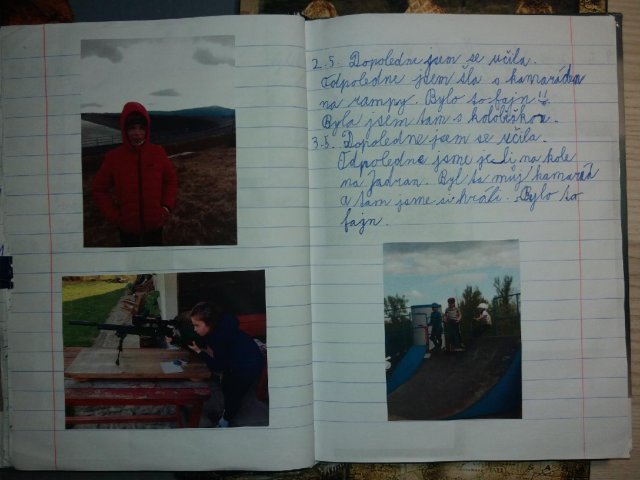 2.5. Dopoledne jsem se učila.
Odpoledne jsem šla s kamarádem
na rampy. Bylo to fajn!!
Byla jsem tam s koloběžkou.
3.5. Dopoledne jsem se učila.
Odpoledne jsme jeli na kole
na Jadran. Byl ta můj kamarád
a tam jsme si hráli. Bylo to
fajn.